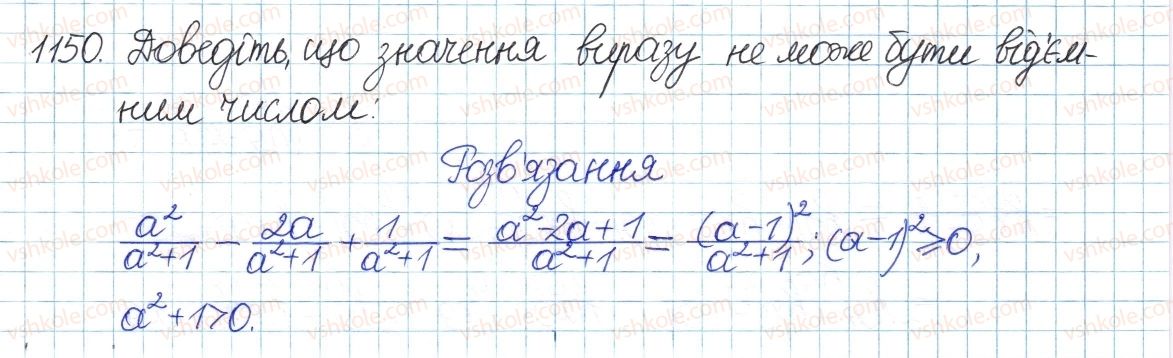 1150. Доведіть, що значення виразу не може бути від'єм-
ним числом:
Розв'язання
a²/(a²+1) - 2a/(a²+1) + 1/(a²+1) = (a²-2a+1)/(a²+1) = (a-1)²/(a²+1); (a-1)² ≥ 0,
a²+1>0.